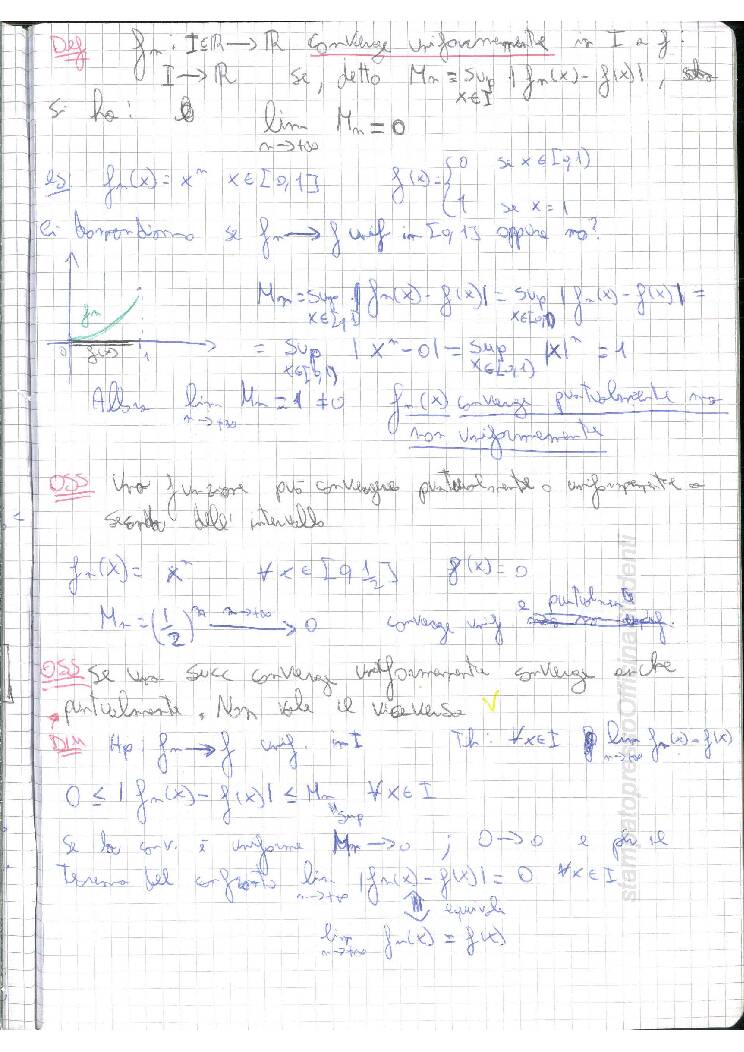 Def fn: I⊆ℝ → ℝ converge uniformemente in I a f:
I → ℝ se, detto Mn = sup x∈I |fn(x) - f(x)|,
si ha: lim n→+∞ Mn = 0
es fn(x) = x^n x∈[0,1] f(x) = { 0 se x∈[0,1)
1 se x=1
Ci domandiamo se fn → f unif in [0,1] oppure no?
Mn = sup x∈[0,1] |fn(x) - f(x)| = sup x∈[0,1) |fn(x) - f(x)| =
fn
= sup x∈[0,1) |x^n - 0| = sup x∈[0,1) |x|^n = 1
0 f(x) 1
Allora lim n→+∞ Mn = 1 ≠ 0 fn(x) converge puntualmente ma
non uniformemente
OSS Una funzione può convergere puntualmente o uniformemente a
seconda dell'intervallo
fn(x) = x^n ∀x∈[0,1/2] f(x) = 0
Mn = (1/2)^n n→+∞ → 0 converge unif e puntualmente
OSS Se una succ converge uniformemente converge anche
puntualmente. Non vale il viceversa ✓
DIM Hp: fn → f unif. in I Th: ∀x∈I lim n→+∞ fn(x) = f(x)
0 ≤ |fn(x) - f(x)| ≤ Mn ∀x∈I
"sup
Se la conv. è uniforme Mn → 0 ; 0 → 0 e per il
Teorema del confronto lim n→+∞ |fn(x) - f(x)| = 0 ∀x∈I
⇕ equivale
lim n→+∞ fn(x) = f(x)
stampatopressoOfficinaStudenti